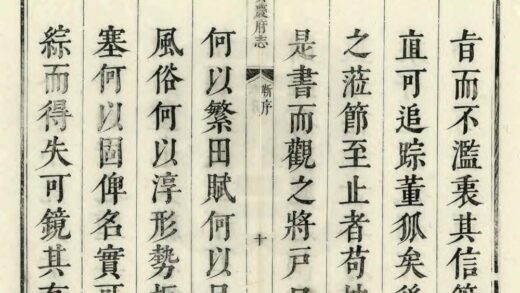 旨而不濫衷其信
直可追踪董狐矣後
之蒞節至止者苟
是書而觀之將戶
慶府志
靳序
十
何以繁田賦何以
風俗何以淳形勢
塞何以固俾名實可
綜而得失可鏡其有